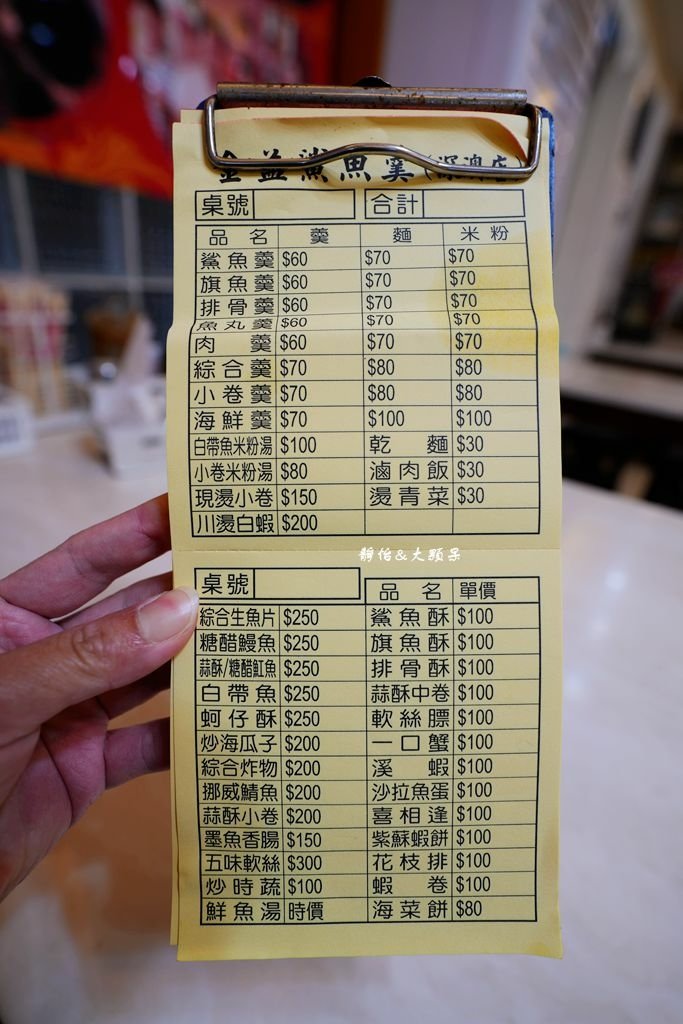 金益鯊魚羹(深澳店)
桌號 合計
品名 羹 麵 米粉
鯊魚羹 $60 $70 $70
旗魚羹 $60 $70 $70
排骨羹 $60 $70 $70
魚丸羹 $60 $70 $70
肉羹 $60 $70 $70
綜合羹 $70 $80 $80
小卷羹 $70 $80 $80
海鮮羹 $70 $100 $100
白帶魚米粉湯 $100 乾麵 $30
小卷米粉湯 $80 滷肉飯 $30
現燙小卷 $150 燙青菜 $30
川燙白蝦 $200
靜怡&大顆呆
桌號 品名 單價
綜合生魚片 $250 鯊魚酥 $100
糖醋鰻魚 $250 旗魚酥 $100
蒜酥/糖醋魟魚 $250 排骨酥 $100
白帶魚 $250 蒜酥中卷 $100
蚵仔酥 $250 軟絲膘 $100
炒海瓜子 $200 一口蟹 $100
綜合炸物 $200 溪蝦 $100
挪威鯖魚 $200 沙拉魚蛋 $100
蒜酥小卷 $200 喜相逢 $100
墨魚香腸 $150 紫蘇蝦餅 $100
五味軟絲 $300 花枝排 $100
炒時蔬 $100 蝦卷 $100
鮮魚湯 時價 海菜餅 $80